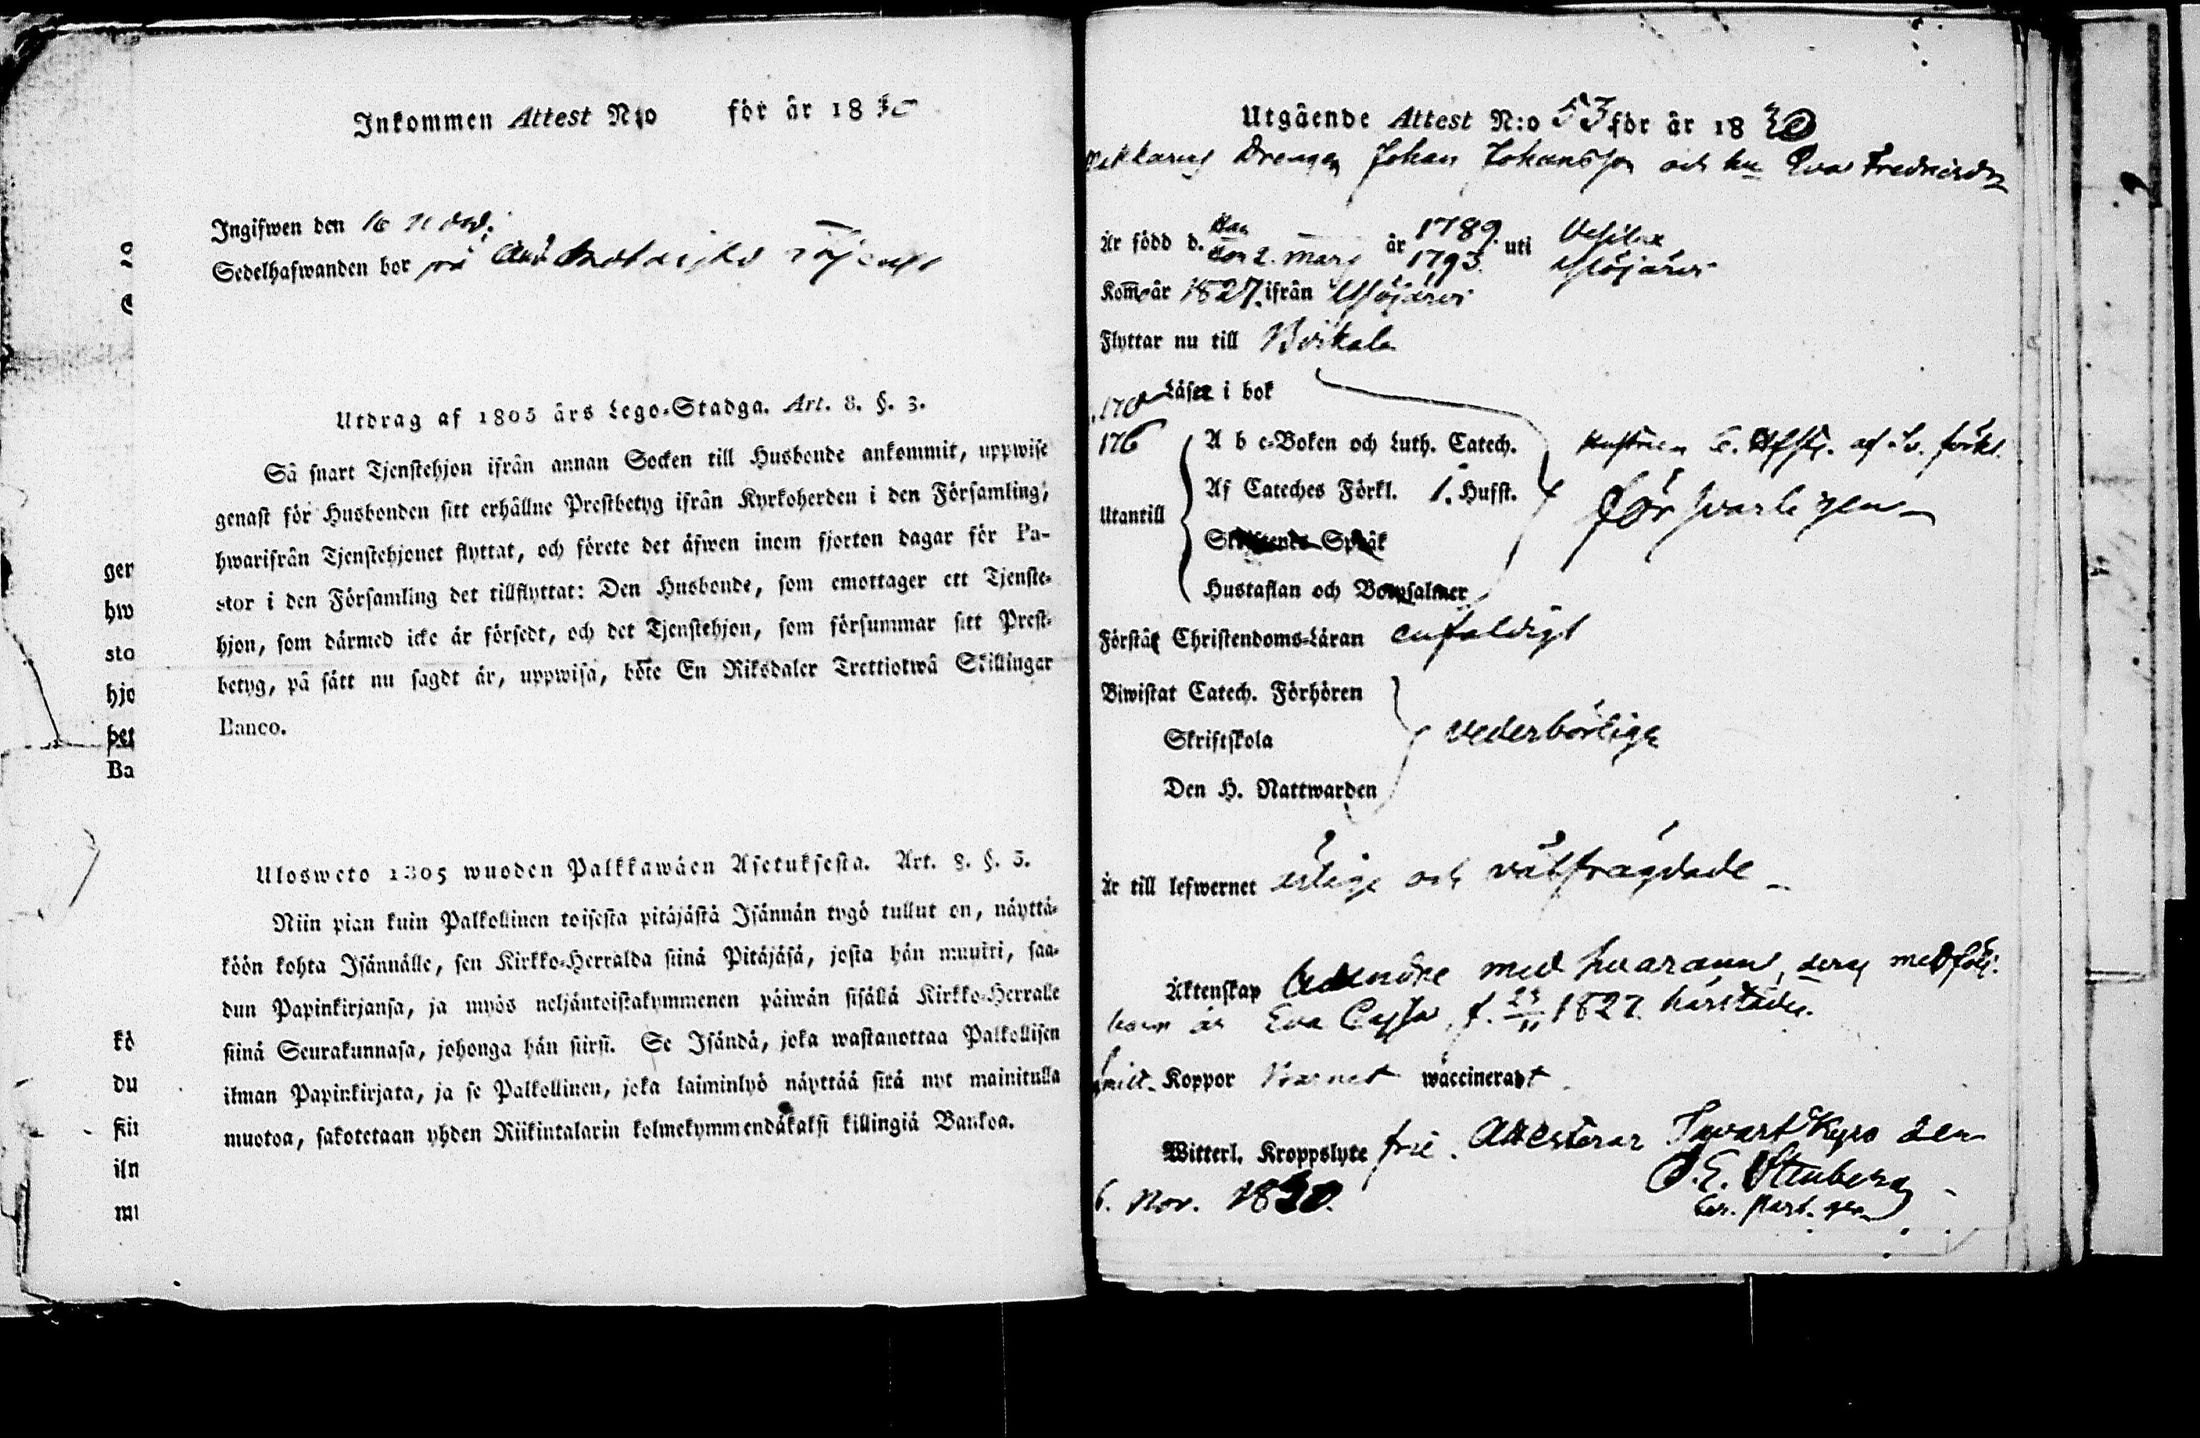 Inkommen Attest N:o för år 1830
Ingifwen den 16
Sedelhafwanden bor på
Utdrag af 1805 års Lego-Stadga. Art. 8. §. 3.
Så snart Tjenstehjon ifrån annan Socken till Husbonde ankommit, uppwise
genast för Husbonden sitt erhållne Prestbetyg ifrån Kyrkoherden i den Församling,
hwarifrån Tjenstehjonet flyttat, och förete det äfwen inom fjorton dagar för Pa-
stor i den Församling det tillflyttat: Den Husbonde, som emottager ett Tjenste-
hjon, som därmed icke är försedt, och det Tjenstehjon, som försummar sitt Prest-
betyg, på sätt nu sagdt är, uppwisa, böte En Riksdaler Trettiotwå Skillingar
Banco.
Ulosweto 1805 wuoden Palkkawäen Asetuksesta. Art. 8. §. 3.
Niin pian kuin Palkollinen toisesta pitäjästä Isännän tygö tullut on, näyttä-
köön kohta Isännälle, sen Kirkko-Herralda siinä Pitäjäsä, josta hän muutti, saa-
dun Papinkirjansa, ja myös neljäntoistakymmenen päiwän sisällä Kirkko-Herralle
siinä Seurakunnasa, johonga hän siirsi. Se Isändä, joka wastanottaa Palkollisen
ilman Papinkirjata, ja se Palkollinen, joka laiminlyö näyttää sitä nyt mainitulla
muotoa, sakotetaan yhden Riikintalarin kolmekymmendäkaksi killingiä Bankoa.
ger
hw
sto
hjo
bet
Ba
kö
du
sii
iln
mu
Utgående Attest N:o 53 för år 1830
Drengen Johan Johansson och hu Eva Fredricsdr
Är född d. Han år 1789 uti Vesilax
den 2. Mars 1793
Kom år 1827 ifrån
Flyttar nu till Birkala
Läser i bok
176
A b c-Boken och Luth. Catech. Hustrun af förkl.
Af Cateches Förkl. 1. Hufst. försvarligen
Utantill
Skriftenes Språk
Hustaflan och Botpsalmer
Förstår Christendoms-Läran enfaldigt
Biwistat Catech. Förhören
Skriftskola vederbörligen
Den H. Nattwarden
Är till lefwernet ärlige och välfrägdade
Äktenskap med hvarannan, deras medfölj.
barn är Eva Cajsa, f. 23/11 1827 härstädes.
Koppor Barnet waccineradt
Witterl. Kroppslyte frie. Attesterar Tavastkyro den
6. Nov. 1830. Stenberg